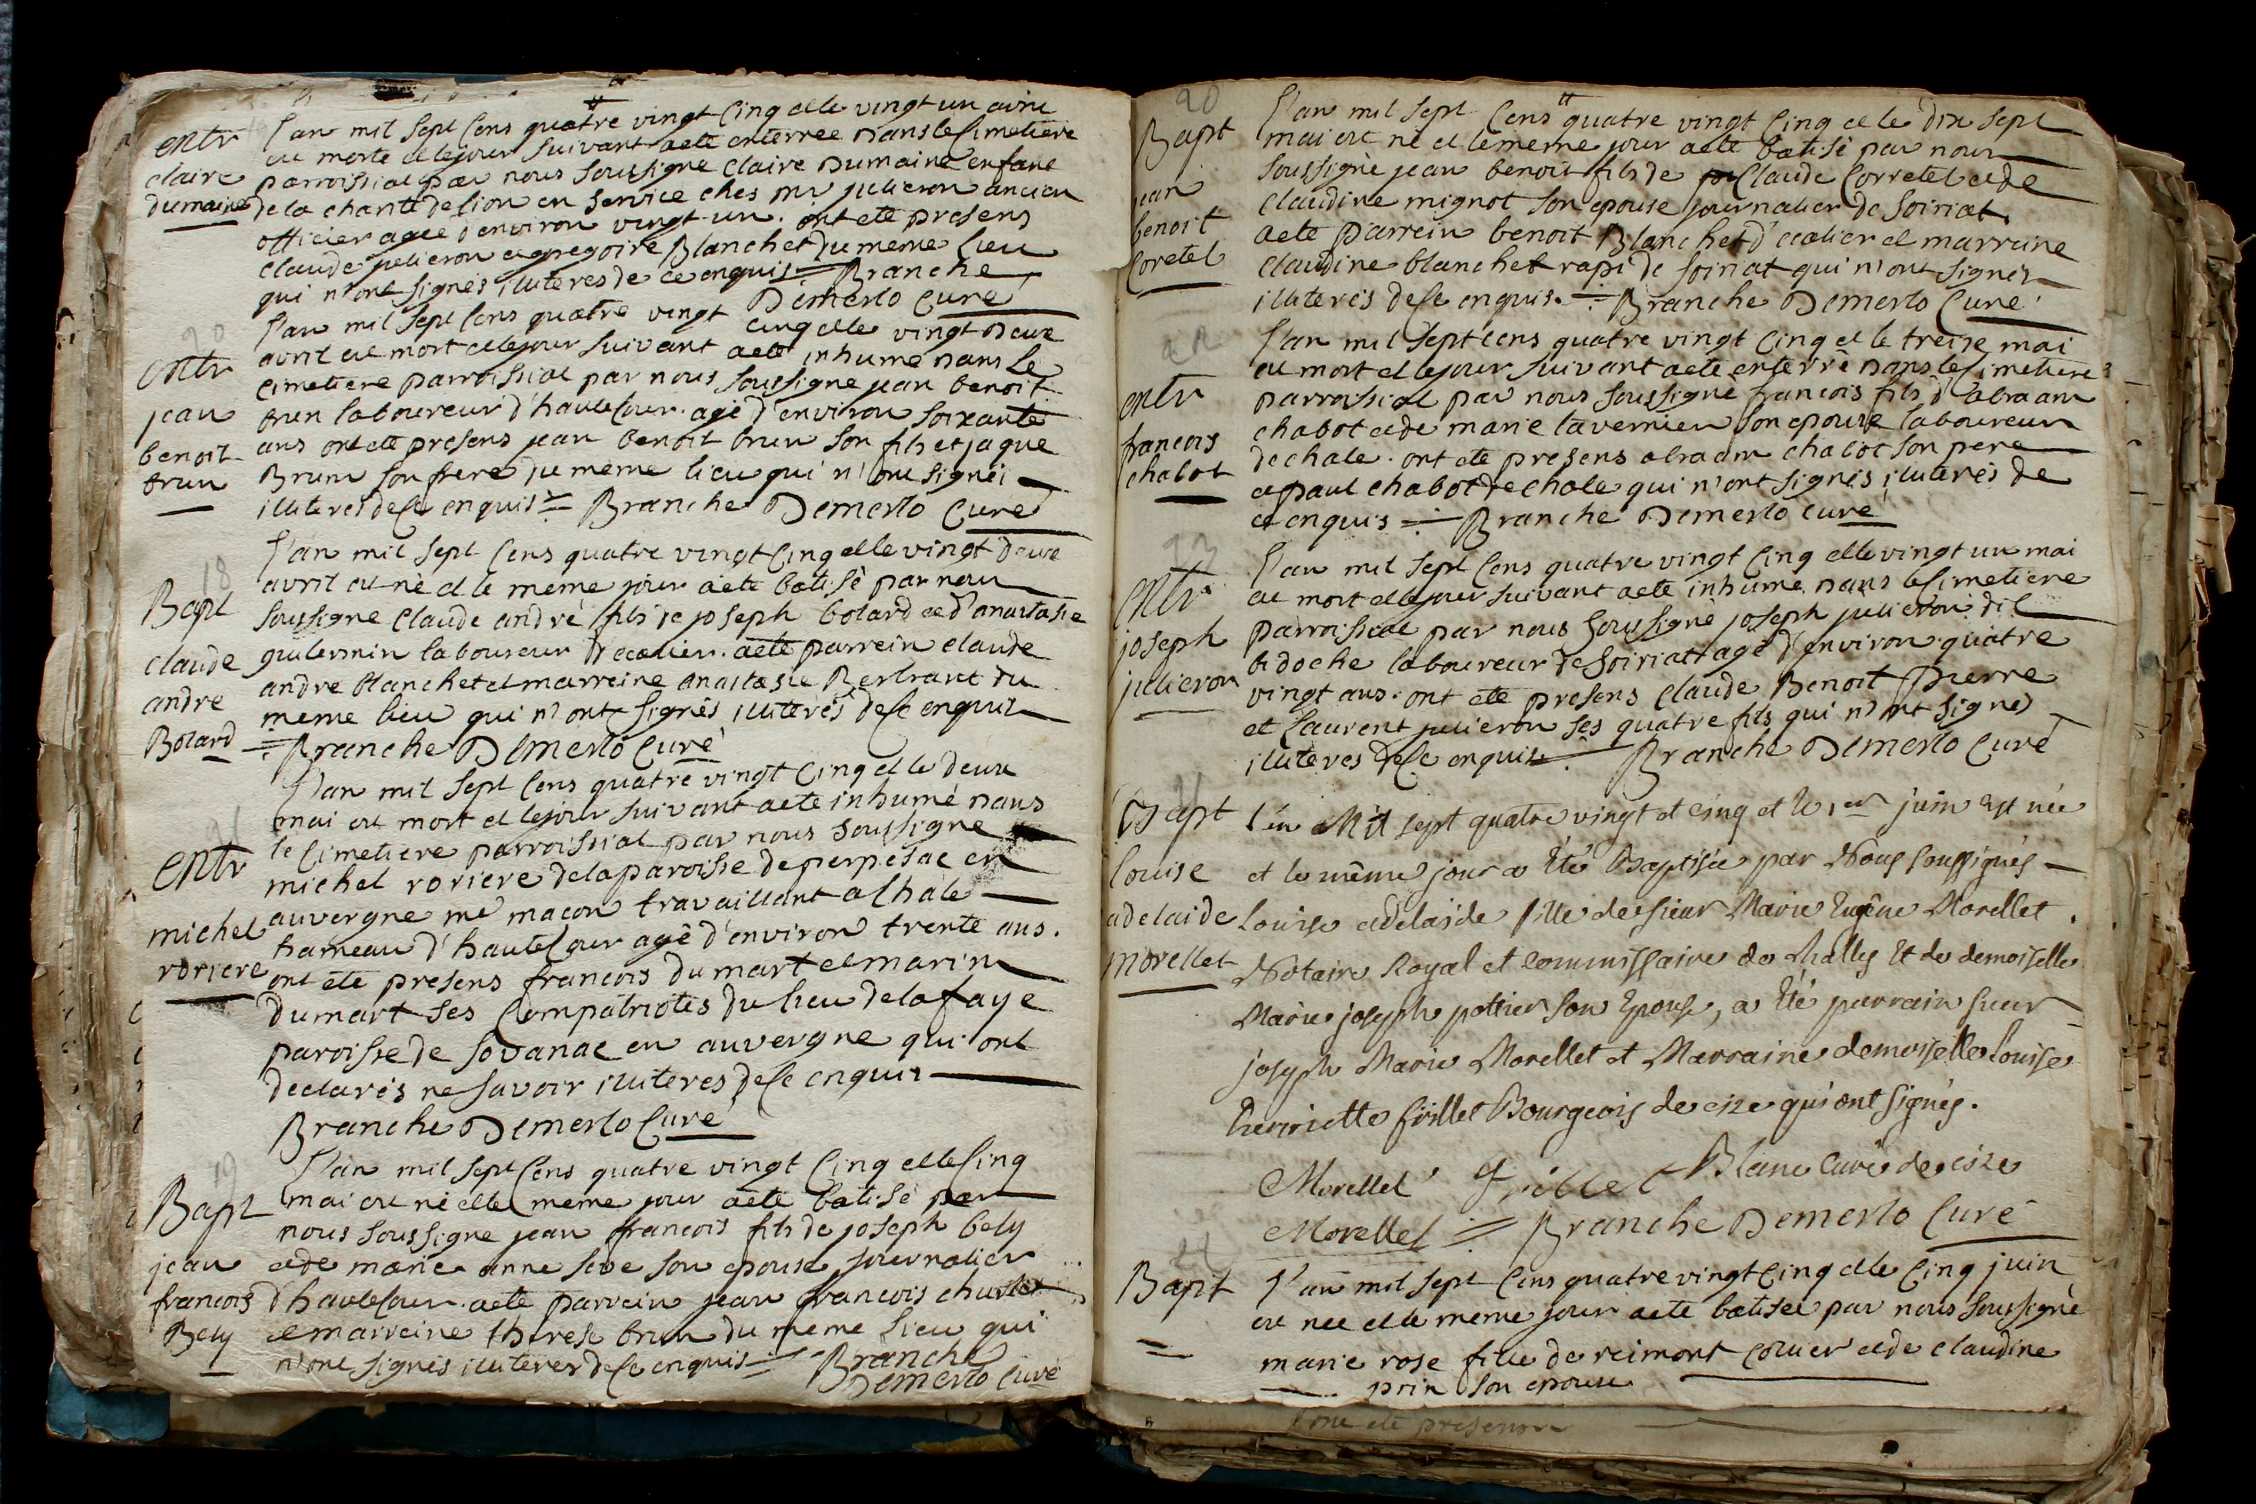 entr
claire
dumaine
l'an mil sept cens quatre vingt cinq et le vingt un avril
est morte et le jour suivant a ete enterree dans le cimetiere
parroissial par nous soussigne claire dumaine enfant
de la charite de lion en service ches mr julieron ancien
officier agee d'environ vingt un. ont ete presens
claude julieron et gregoire Blanchet du meme lieu
qui n'ont signés illiteres de ce enquis Branche
Demerlo Curé
20
entr
jean
benoit
brun
l'an mil sept cens quatre vingt cinq et le vingt deux
avril est mort et le jour suivant a ete inhume dans le
cimetiere parroissial par nous soussigne jean benoit
brun laboureur d'hautecour. agé d'environ soixante
ans ont ete presens jean benoit brun son fils et jaque
Brun son frere du meme lieu qui n'ont signés
illiteres de ce enquis = Branche Demerlo Curé
18
Bapt
claude
andre
Bolard
l'an mil sept cens quatre vingt cinq et le vingt deux
avril est né et le meme jour a ete batisé par nous
soussigne claude andré fils de joseph bolard et d'anastasie
guilermin laboureur d'ecolier. a eté parrein claude
andre blanchet et marreine anastasie Bertrant du
meme lieu qui n'ont signés illiterés de ce enquis
Branche Demerlo Curé
21
entr
michel
roriere
l'an mil sept cens quatre vingt cinq et le deux
mai est mort et le jour suivant a ete inhumé dans
le cimetiere parroissial par nous soussigne
michel roriere de la paroisse de perpesac en
auvergne me macon travaillant a chale
hameau d'hautecour agé d'environ trente ans.
ont été presens francois dumart et marin
dumart ses compatriotes du lieu de lafaye
paroisse de sovanac en auvergne qui ont
declarés ne savoir illiteres de ce enquis
Branche Demerlo Curé
19
Bapt
jean
francois
Bely
l'an mil sept cens quatre vingt cinq et le cinq
mai est né et le meme jour a ete batisé par
nous soussigne jean francois fils de joseph bely
et de marie anne seve son epouse journalier
d'hautecour. a ete parrein jean francois
et marreine therese brun du meme lieu qui
n'ont signés illiteres de ce enquis Branche
Demerlo Curé
20
Bapt
jean
benoit
Coretel
l'an mil sept cens quatre vingt cinq et le dix sept
mai est né et le meme jour a ete batisé par nous
soussigné jean benoit fils de Claude Corretel et de
claudine mignot son epouse journalier de Soiriat
a ete parrein benoit Blanchet d'ecolier et marreine
claudine blanchet rapi de soiriat qui n'ont signés
illiterés de ce enquis. Branche Demerlo Curé
22
entr
francois
chabot
l'an mil sept cens quatre vingt cinq et le treize mai
est mort et le jour suivant a eté enterré dans le cimetiere
parroissial par nous soussigné francois fils d'abraam
chabot et de marie tavernier son epouse laboureur
de chale. ont ete presens abraam chabot son pere
et paul chabot de chale qui n'ont signés illiterés de
ce enquis Branche Demerlo curé
23
entr
joseph
julieron
l'an mil sept cens quatre vingt cinq et le vingt un mai
est mort et le jour suivant a ete inhume dans le cimetiere
parroissial par nous soussigné joseph julieron dit
bidoche laboureur de soiriat agé d'environ quatre
vingt ans. ont eté presens claude Benoit Pierre
et Laurent julieron ses quatre fils qui n'ont signés
illiteres de ce enquis Branche Demerlo Curé
21
Bapt
louise
adelaide
morellet
l'an Mil sept quatre vingt et cinq et le 1er juin Est née
et le même jour a Eté Baptisée par Nous soussignés
Louise adelaïde fille de sieur Marie Eugêne Morellet
Notaire Royal et Commissaire de challes Et de demoiselle
Marie joseph pottier son Epouse, a Eté parrain sieur
joseph Marie Morellet et Marraine demoiselle Louise
henriette frillet Bourgeois de cize qui ont signés.
Morellet frillet Blanc Curé de cize
Morellet Branche Demerlo Curé
Bapt
l'an mil sept cens quatre vingt cinq et le cinq juin
est nee et le meme jour a eté batisee par nous soussigné
marie rose fille de reimont et de claudine
prin son epouse
ont ete presens